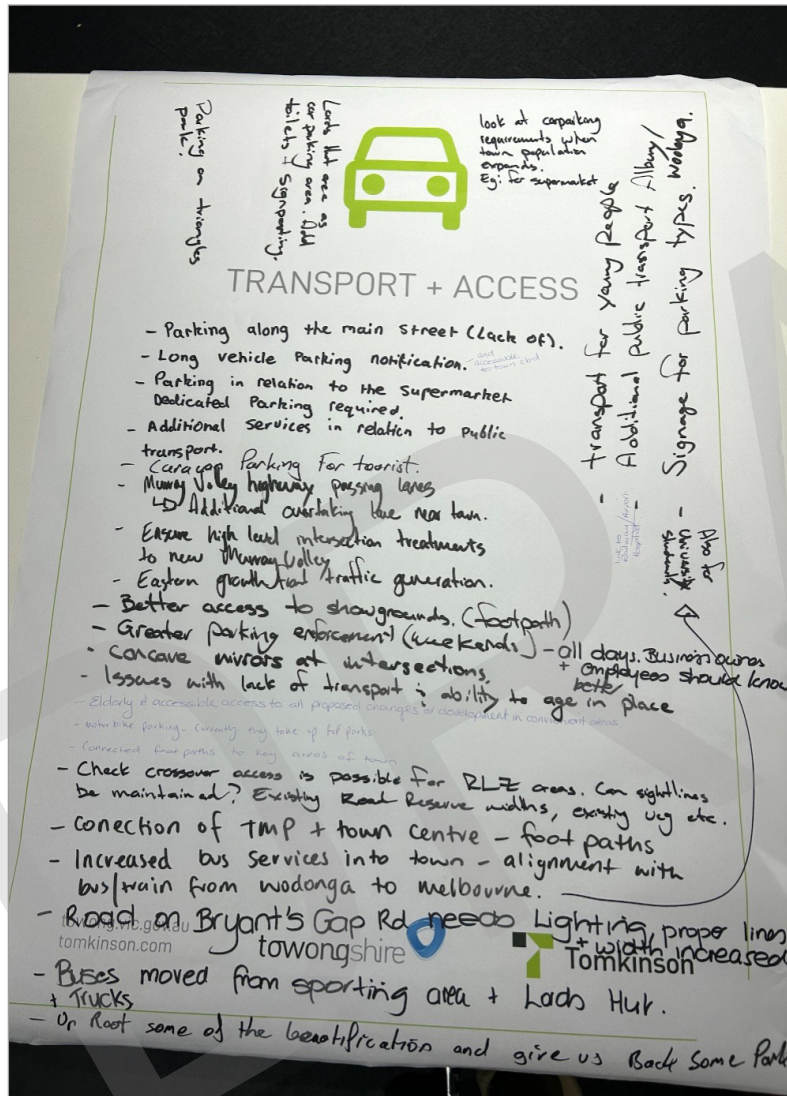 Parking on triangles
park?
Lards Hut area as
car parking area. Add
toilets + Signposting.
look at carparking
requirements when
town population
expands.
Eg: for supermarket
- transport for young people
- Additional public transport Albury/
Wodonga.
link to
Railway/Airport
hospital
- Signage for parking types.
Also for
university
students.
TRANSPORT + ACCESS
- Parking along the main street (Lack of).
- Long vehicle Parking notification. - and
accessible
to town cbd
- Parking in relation to the supermarket
Dedicated Parking required.
- Additional services in relation to public
transport.
- Caravan Parking For tourist.
- Murray Valley highway passing lanes
↳ Additional overtaking lane near town.
- Ensure high level intersection treatments
to new Murray Valley
- Eastern growth traffic generation.
- Better access to showgrounds. (footpath)
- Greater parking enforcement (weekends) - all days. Business owners
+ employees should know
better
- Concave mirrors at intersections.
- Issues with lack of transport & ability to age in place
- Elderly & accessible access to all proposed changes or development in convenient areas
- Motorbike parking - Currently they take up full parks
- Connected foot paths to key areas of town
- Check crossover access is possible for RLZ areas. Can sightlines
be maintained? Existing Road Reserve widths, existing veg etc.
- Conection of TMP + town centre - foot paths
- Increased bus services into town - alignment with
bus/train from wodonga to melbourne.
- Road on Bryant's Gap Rd needs Lighting, proper lines
+ width increased
towong.vic.gov.au
tomkinson.com
towongshire
Tomkinson
- Buses moved from sporting area + Lads Hut.
+ Trucks
- Up Root some of the beautification and give us Back Some Park